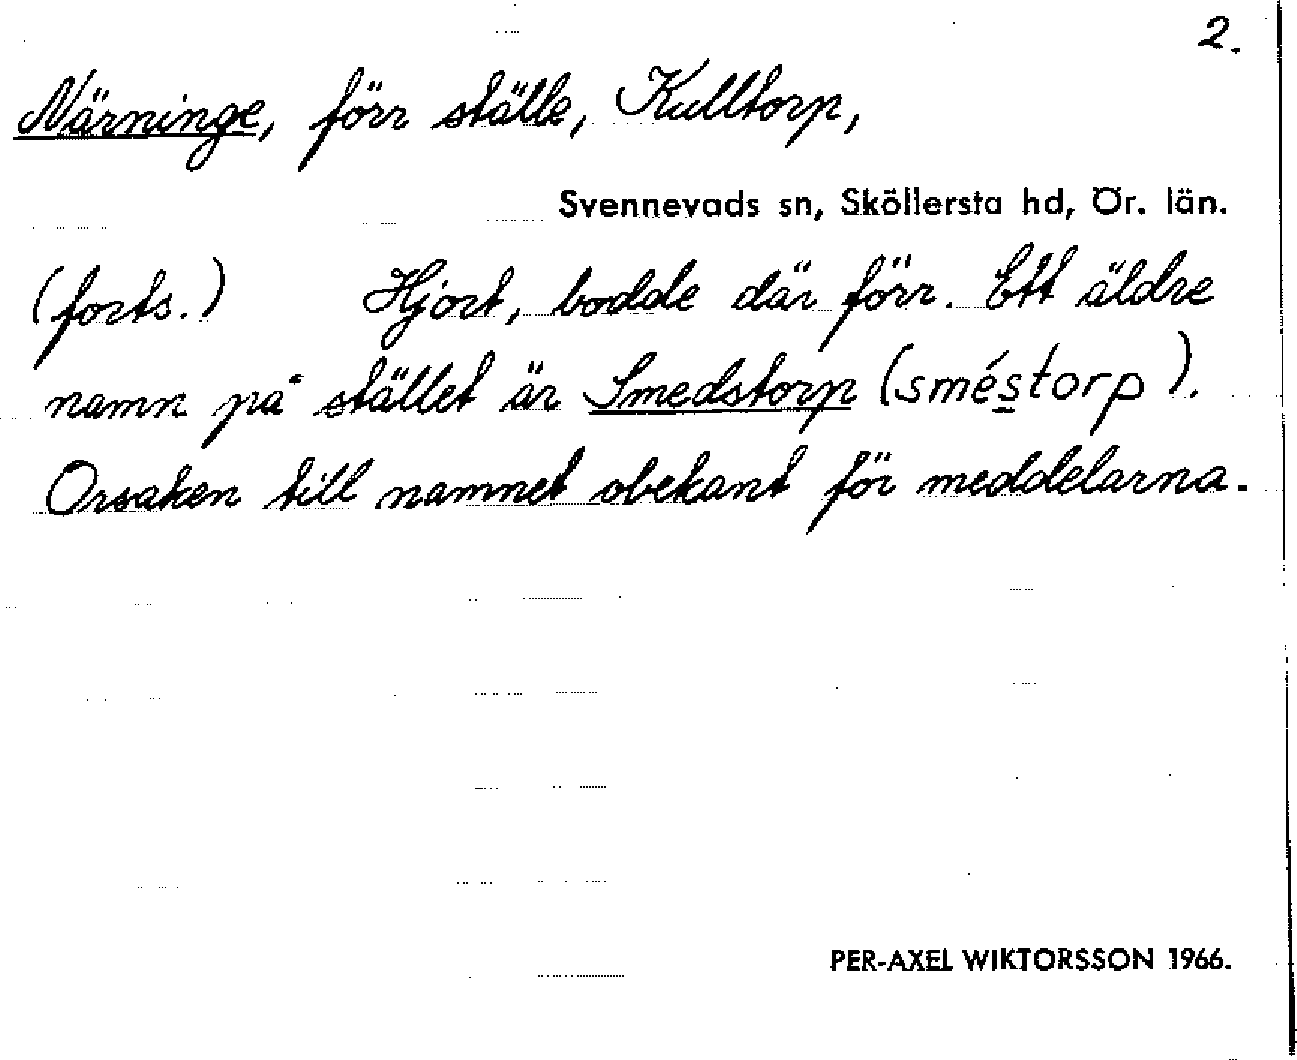 2.
Närninge, förr ställe, Kulltorp,
Svennevads sn, Sköllersta hd, Ör. län.
(forts.) Hjort, bodde där förr. Ett äldre
namn på stället är Smedstorp (sméstorp).
Orsaken till namnet obekant för meddelarna.
PER-AXEL WIKTORSSON 1966.